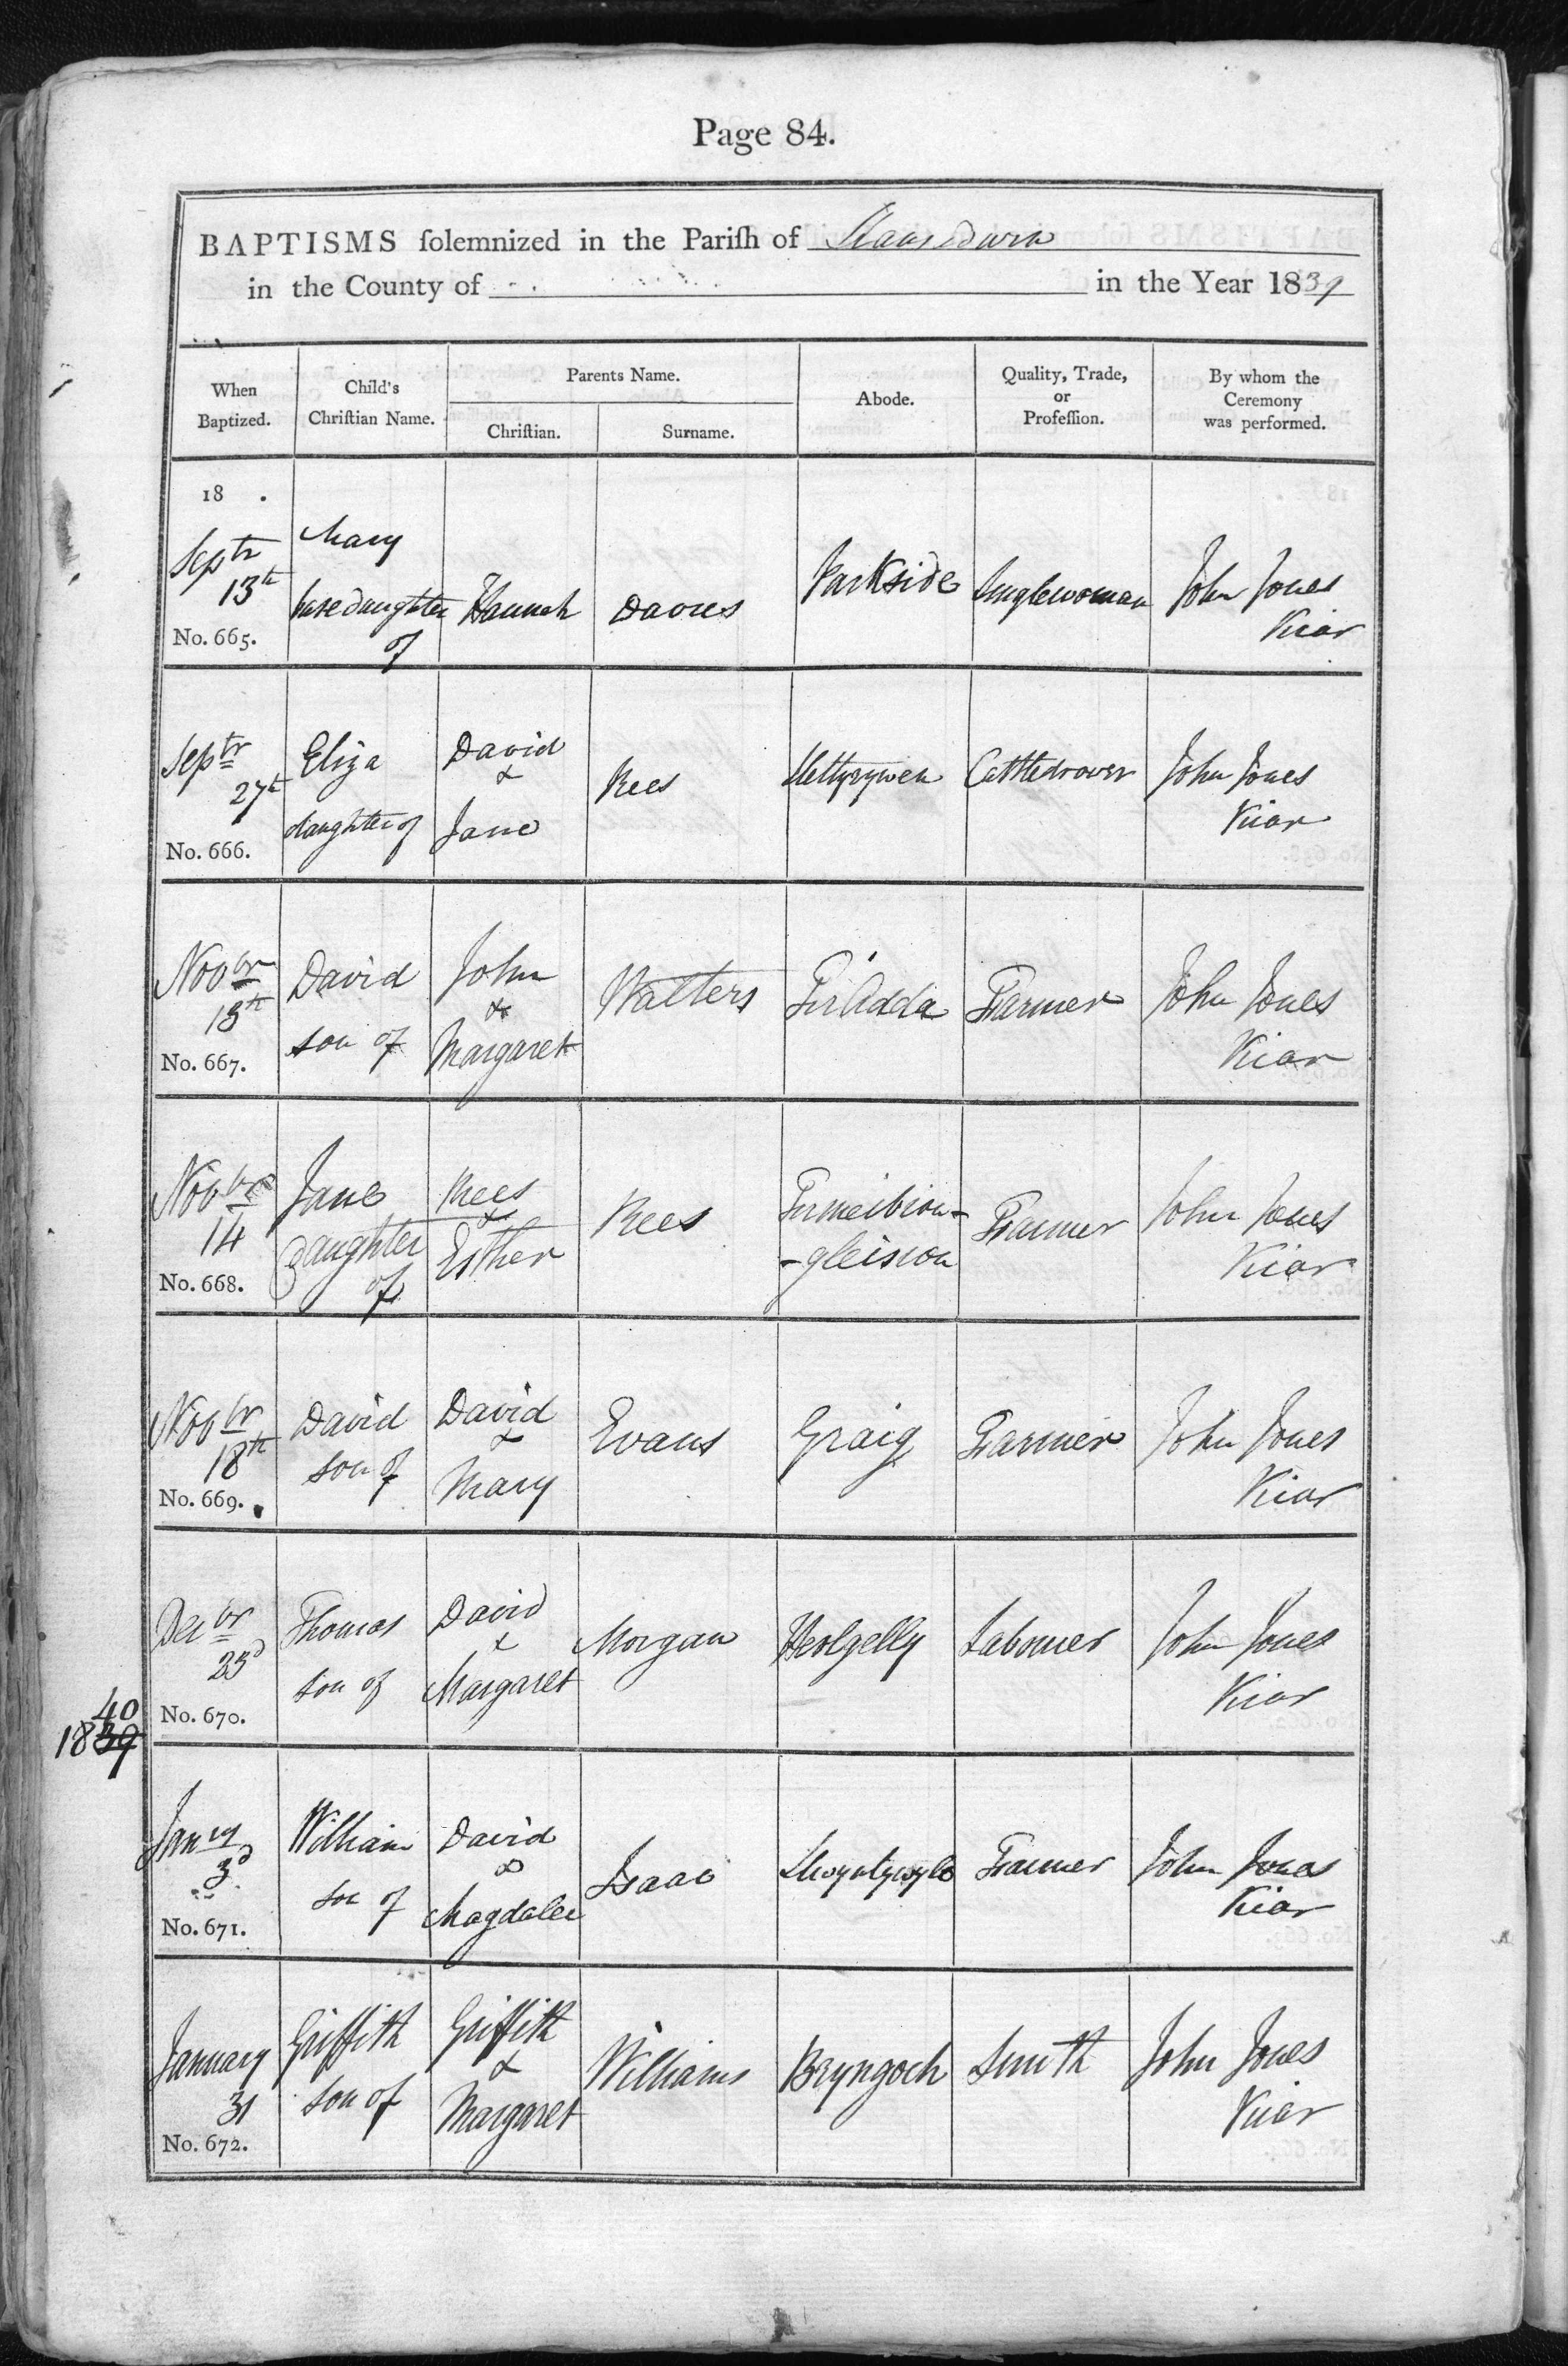 Page 84.
BAPTISMS solemnized in the Parish of Llansadwrn
in the County of in the Year 1839
When Baptized.
Child's Christian Name.
Parents Name.
Christian.
Surname.
Abode.
Quality, Trade, or Profession.
By whom the Ceremony was performed.
18 .
Septr 13th
No. 665.
Mary base daughter of
Hannah
Davies
Parkside
Singlewoman
John Jones Vicar
Septr 27th
No. 666.
Eliza daughter of
David & Jane
Rees
Cattledrover
John Jones Vicar
Novbr 13th
No. 667.
David son of
John & Margaret
Walters
Tir Adda
Farmer
John Jones Vicar
Novbr 14
No. 668.
Jane Daughter of
Rees & Esther
Rees
Tirmeibion-
-gleision
Farmer
John Jones Vicar
Novbr 18th
No. 669.
David son of
David & Mary
Evans
Graig
Farmer
John Jones Vicar
Decbr 25d
No. 670.
Thomas son of
David & Margaret
Morgan
Heolgelly
Labourer
John Jones Vicar
40
1839
Jany 3d
No. 671.
William son of
David & Magdalen
Isaac
Farmer
John Jones Vicar
January 31
No. 672.
Griffith son of
Griffith & Margaret
Williams
Bryngoch
Smith
John Jones Vicar